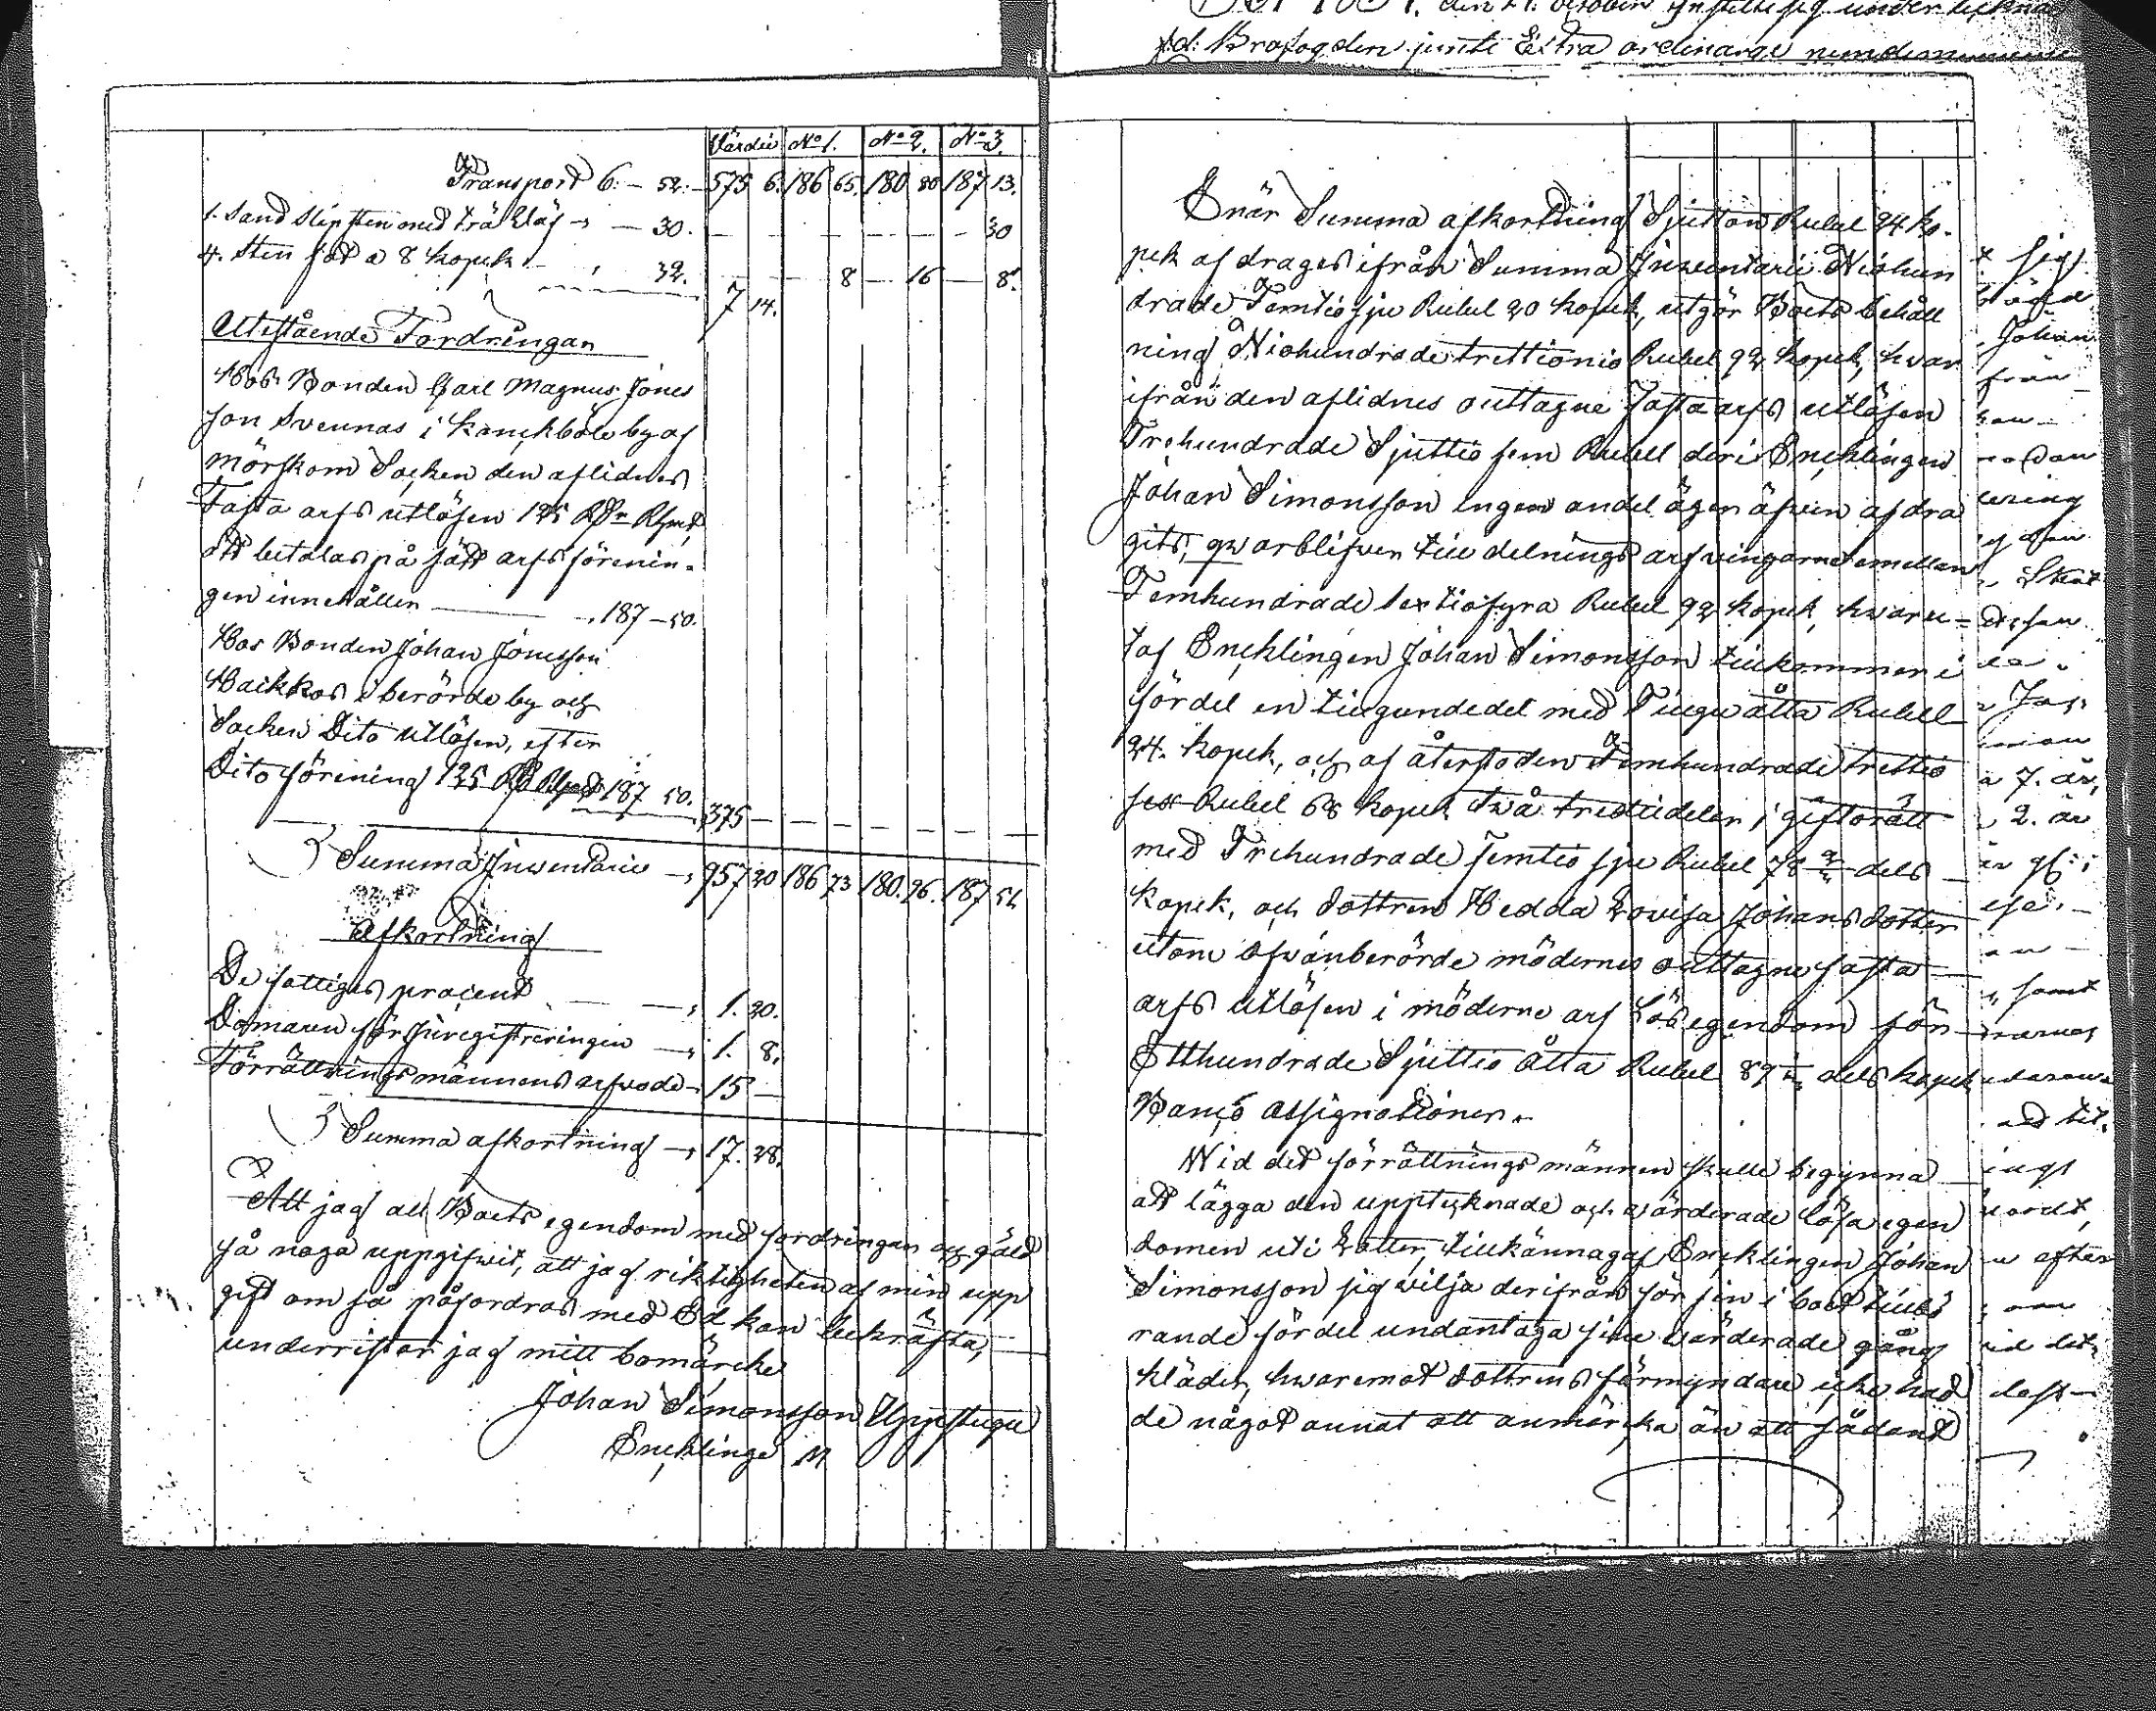 Värdie No 1. No 2. No 3.
Transport 6. — 52. — 575 6. 186 65. 180 80 187 13.
1. Sand Slipsten med trä — 30. — — — — — 30
4. Sten fat a 8 kopek — 32. — — 8 — 16 — 8.
7 14.
Utestående Fordringar
Hos Bonden Carl Magnus Jönes
son Svennas i Kanckböle by af
Mörskom Socken den aflidnes
Fasta arfs utlösen 125 R
att betalas på sätt arfs förenin-
gen innehåller — 187 — 50.
Hos Bonden Johan Jönesson
Haikkas i berörde by och
Socken Dito utlösen, efter
Dito förening 125 187 50. 375 — — — — — —
Summa Inventarie — 957 20 186 73 180. 96. 187 51
Afkortning
De fattiges procent — 1. 20.
Domaren för Inregistreringen — 1. 8.
Förrättningsmännens arfvode — 15 —
Summa afkortning — 17. 28.
Att jag all Boets egendom med fordringar och gäld
så noga uppgifwit, att jag riktigheten af min upp
gift om så påfordras med Ed kan bekräfta,
underristar jag mitt bomärcke
Johan Simonsson Uppstugu
Encklinge
den 21. October instälte sig undertecknad
f.d. Brofogden jemte Extra ordinarge nemdemannen
Enär Summa afkortning Sjutton Rubel 24 ko-
pek af drages ifrån Summa Inventarii Niohun
drade Femtiosju Rubel 20 kopek, utgör Boets behåll
ning Niohundrade trettionio Rubel 92 kopek, hvar
ifrån den aflidnes outtagne fasta arfs utlösen
Trehundrade Sjuttio fem Rubel deri Encklingen
Johan Simonsson ingen andel äger äfven afdra
gits, qwarblifver till delnings arfvingarne emellan
Femhundrade sextiofyra Rubel 92 kopek, hvaru-
taf Encklingen Johan Simonsson tillkommer i
fördel en tjugundedel med Tiugu åtta Rubel
24. kopek, och af återstoden Femhundrade trettio
sex Rubel 68 kopek två tredjedelar i giftorätt
med Trehundrade femtio sju Rubel 78 2/3 dels
kopek, och dottren Hedda Lovisa Johansdotter
utom ofvanberörde mödernes outtagne fasta
arfs utlösen i möderne arf Lösegendom för
Etthundrade Sjuttio åtta Rubel 89 1/3 dels kopek
Banco assignationer.
Wid det förrättningsmännen skulle begynna
att lägga den upptecknade och värderade lösa egen
domen uti Lotter, tillkännagaf Encklingen Johan
Simonsson sig vilja derifrån för sin i boet
rande fördel undantaga sine värderade gång
kläder, hvaremot dottrens förmyndare icke had
de något annat att anmärcka än att sådant
Johan
från
7. år,
2. är
samt
efter